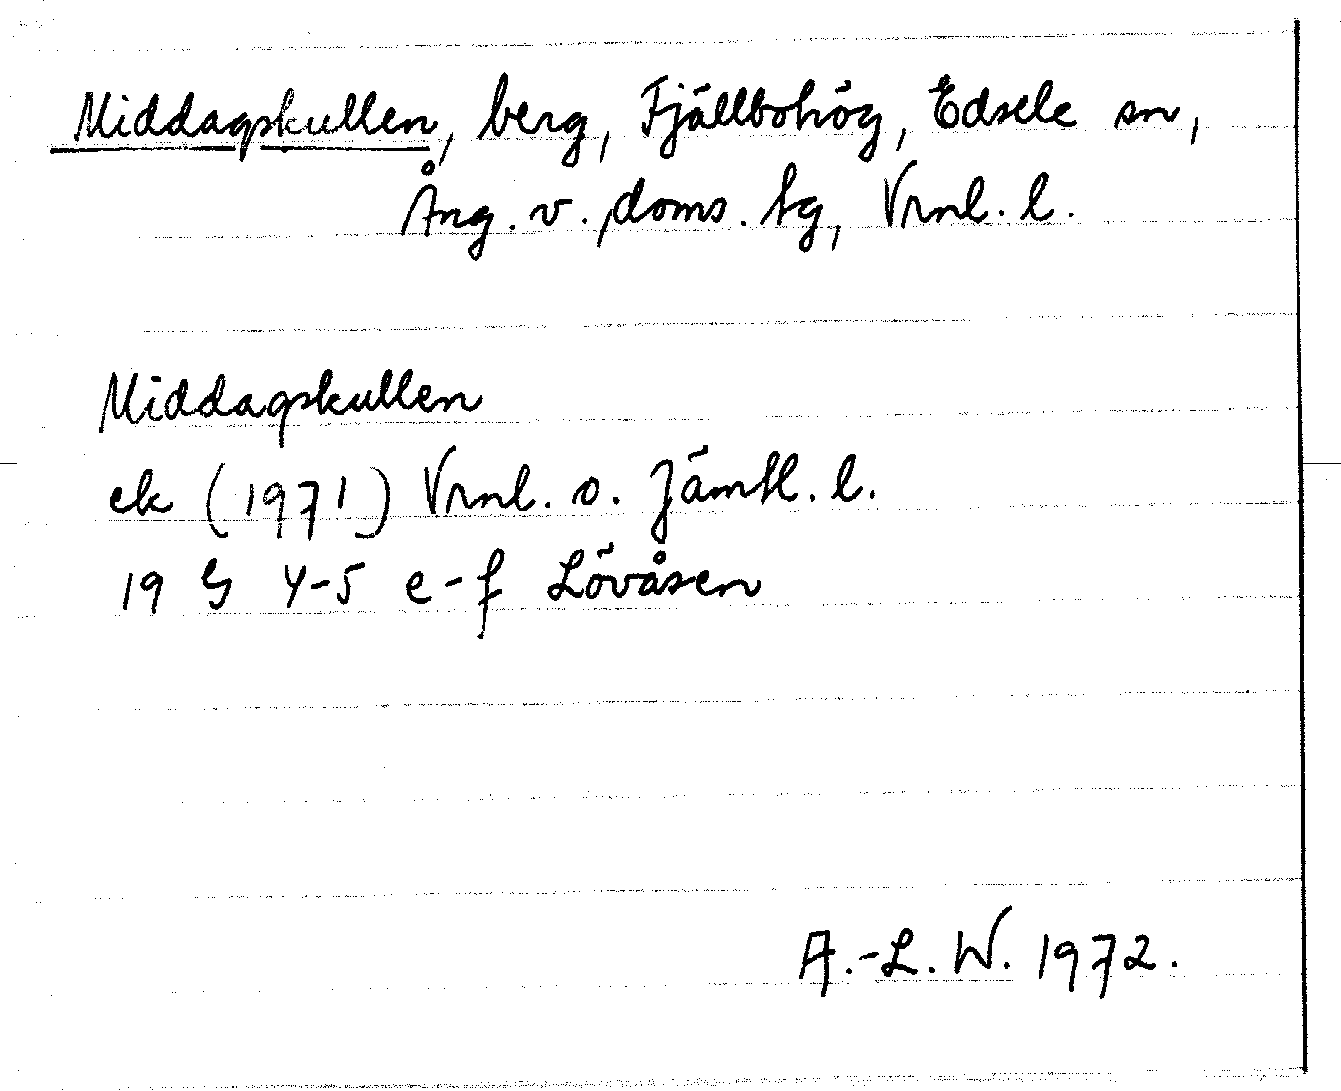 Middagskullen, berg, Fjällbohög, Edsele sn,
Ång. v. doms. tg, Vrnl. l.
Middagskullen
ek (1971) Vrnl. o. Jämtl. l.
19 G 4-5 e-f Lövåsen
A.-L. W. 1972.